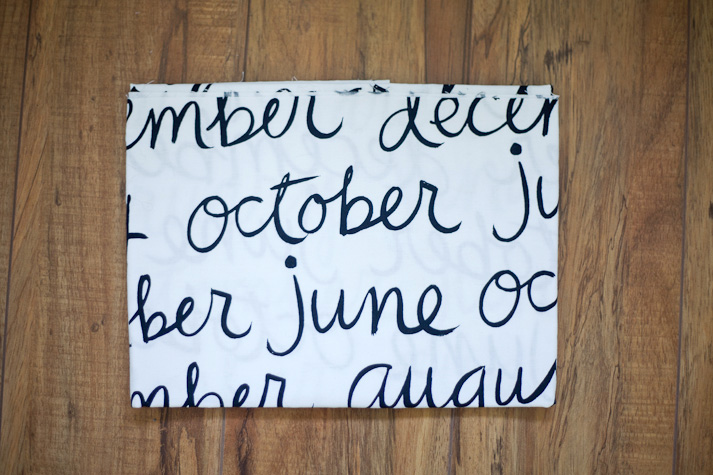 ember decem
october ju
ber june oc
mber augu